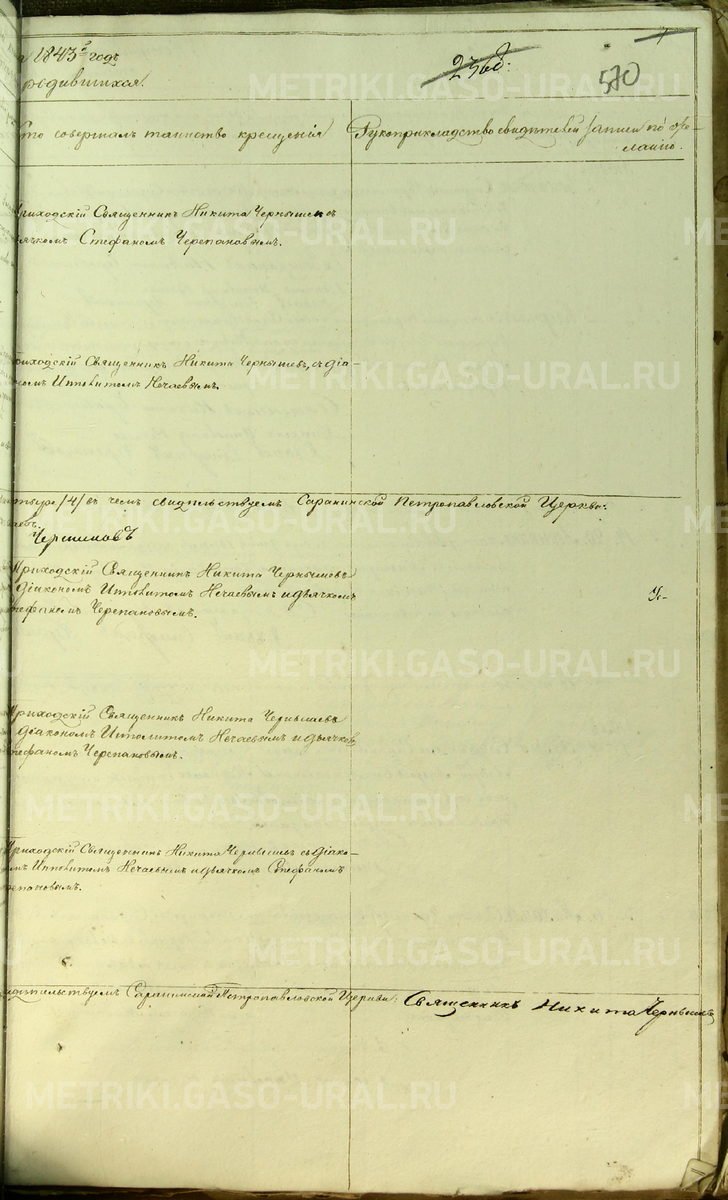 1843 годъ
2360.
570
родившихся.
Кто совершалъ таинство крещенія
Рукоприкладство свидѣтелей записи по же-
ланію.
Приходскій Священникъ Никита Чернышевъ
дьячкомъ Стефаномъ Черепановымъ.
Приходскій Священникъ Никита Чернышевъ, съ діа-
кономъ Ипполитомъ Нечаевымъ.
четыре /4/ въ чемъ свидѣтельствуемъ Саранинской Петропавловской Церкви:
Приходскій Священникъ Никита Чернышевъ
діакономъ Ипполитомъ Нечаевымъ и дьячкомъ
Стефаномъ Черепановымъ.
Приходскій Священникъ Никита Чернышевъ
діакономъ Ипполитомъ Нечаевымъ и дьячкомъ
Стефаномъ Черепановымъ.
Приходскій Священникъ Никита Чернышевъ съ діако-
номъ Ипполитомъ Нечаевымъ и дьячкомъ Стефаномъ
Черепановымъ.
свидѣтельствуемъ Саранинской Петропавловской Церкви: Священникъ Никита Чернышевъ
METRIKI.GASO-URAL.RU